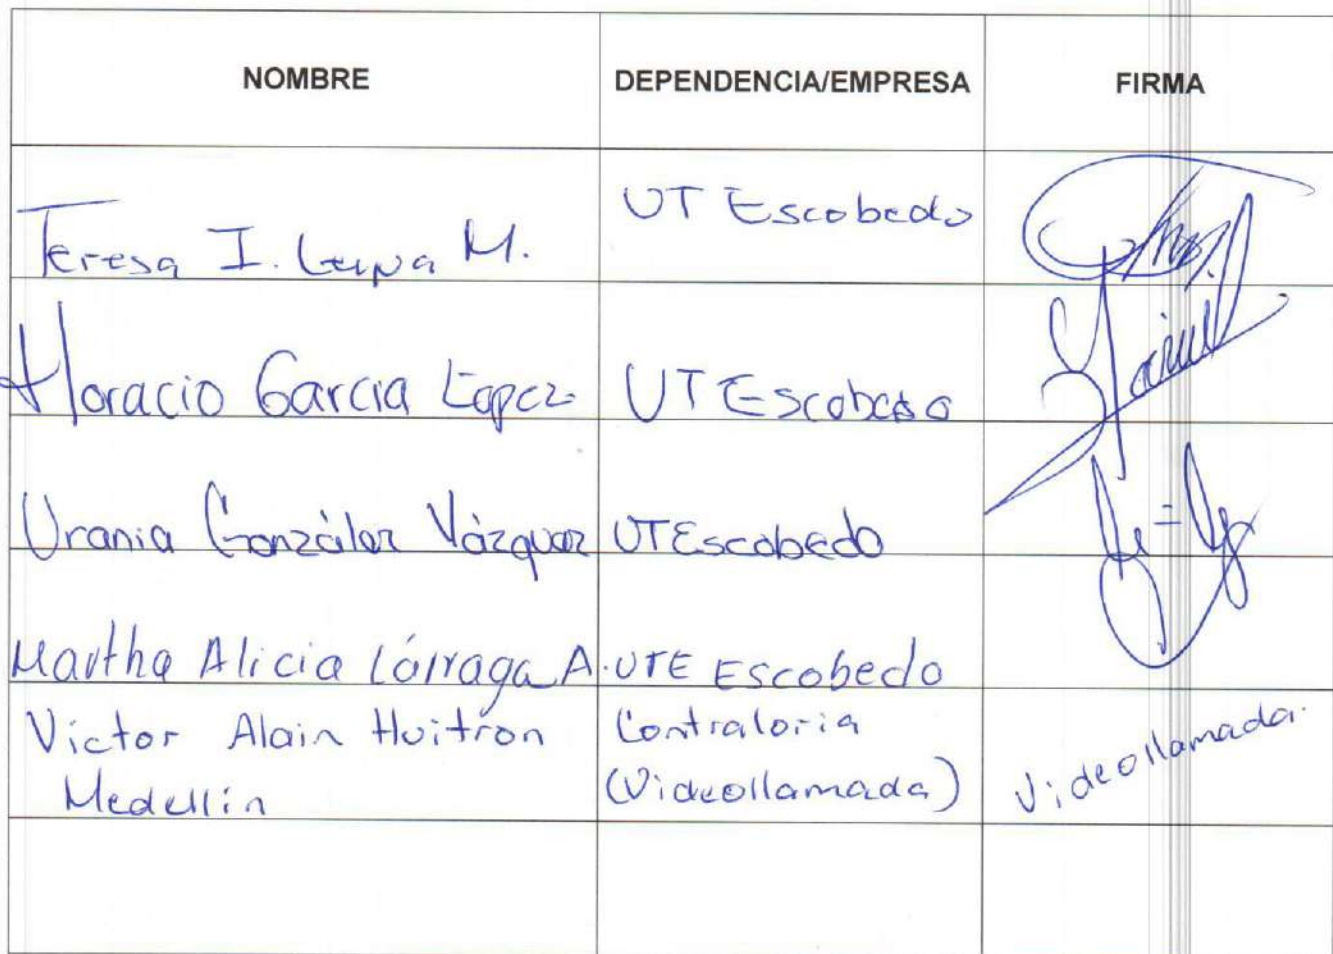 NOMBRE DEPENDENCIA/EMPRESA FIRMA
Teresa I. M. UT Escobedo
Horacio Garcia Lopez UT Escobedo
Urania González Vázquez UTEscobedo
Martha Alicia Lárraga A. UTE Escobedo
Victor Alain Huitrón Contraloria
Medellín (Videollamada) Videollamada.